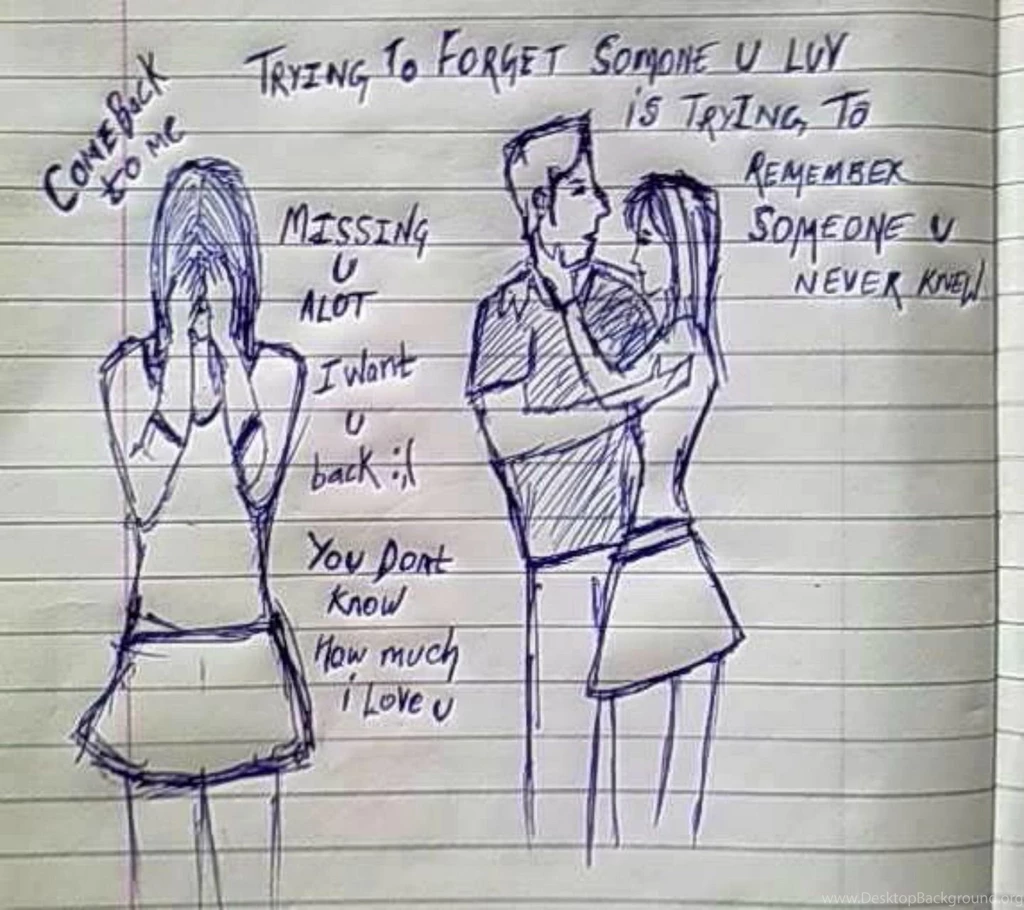 COME BACK
to ME
TRYING To FORGET SOMONE U LUV
iS TRYING To
REMEMBER
SOMEONE U
NEVER KNEW
MISSING
U
ALOT
I Want
u
back :,(
YOU DONt
KNOW
How much
i Love u
www.DesktopBackground.org